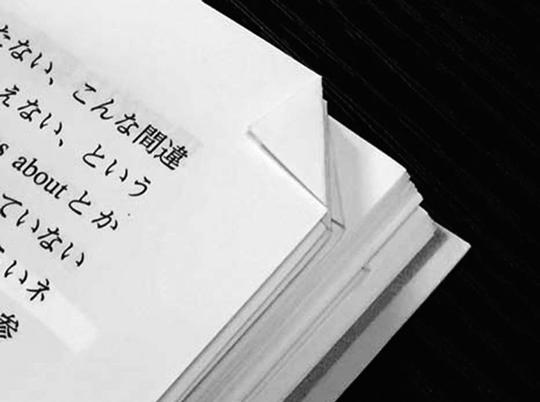 ない、こんな間違
えない、という
s about とか
ていない
いネ
参